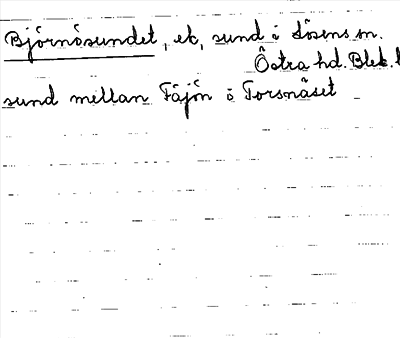 Björnösundet, ek, sund i Lösens sn.
Östra hd. Blek. l
sund mellan Fäjön o Torsnäset